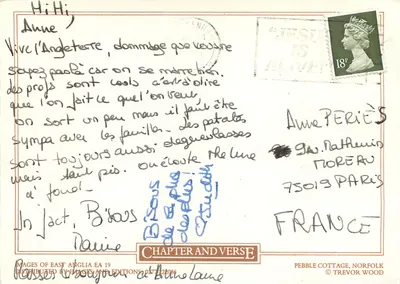 Hi Hi,
Anne
Vive l'Angleterre, dommage que vous ne
soyez pas là car on se marre bien.
des profs sont cools c'est à dire
que l'on fait ce quel'on veut
on sort un peu mais il faut être
sympa avec les familles. des patates
sont toujours aussi dégueulasses
mais tant pis. on écoute the Cure
à fond.
In fact, Bisous
Bisous
de la plus
des plus!
Judith
CHAPTER AND VERSE
IMAGES OF EAST ANGLIA EA 19
DISTRIBUTED BY
Passes le bonjour à Anne Laure
18P
JESUS
IS
Anne PERIÈS
9 Av. Mathurin
MOREAU
75019 PARIS
FRANCE
PEBBLE COTTAGE, NORFOLK
© TREVOR WOOD